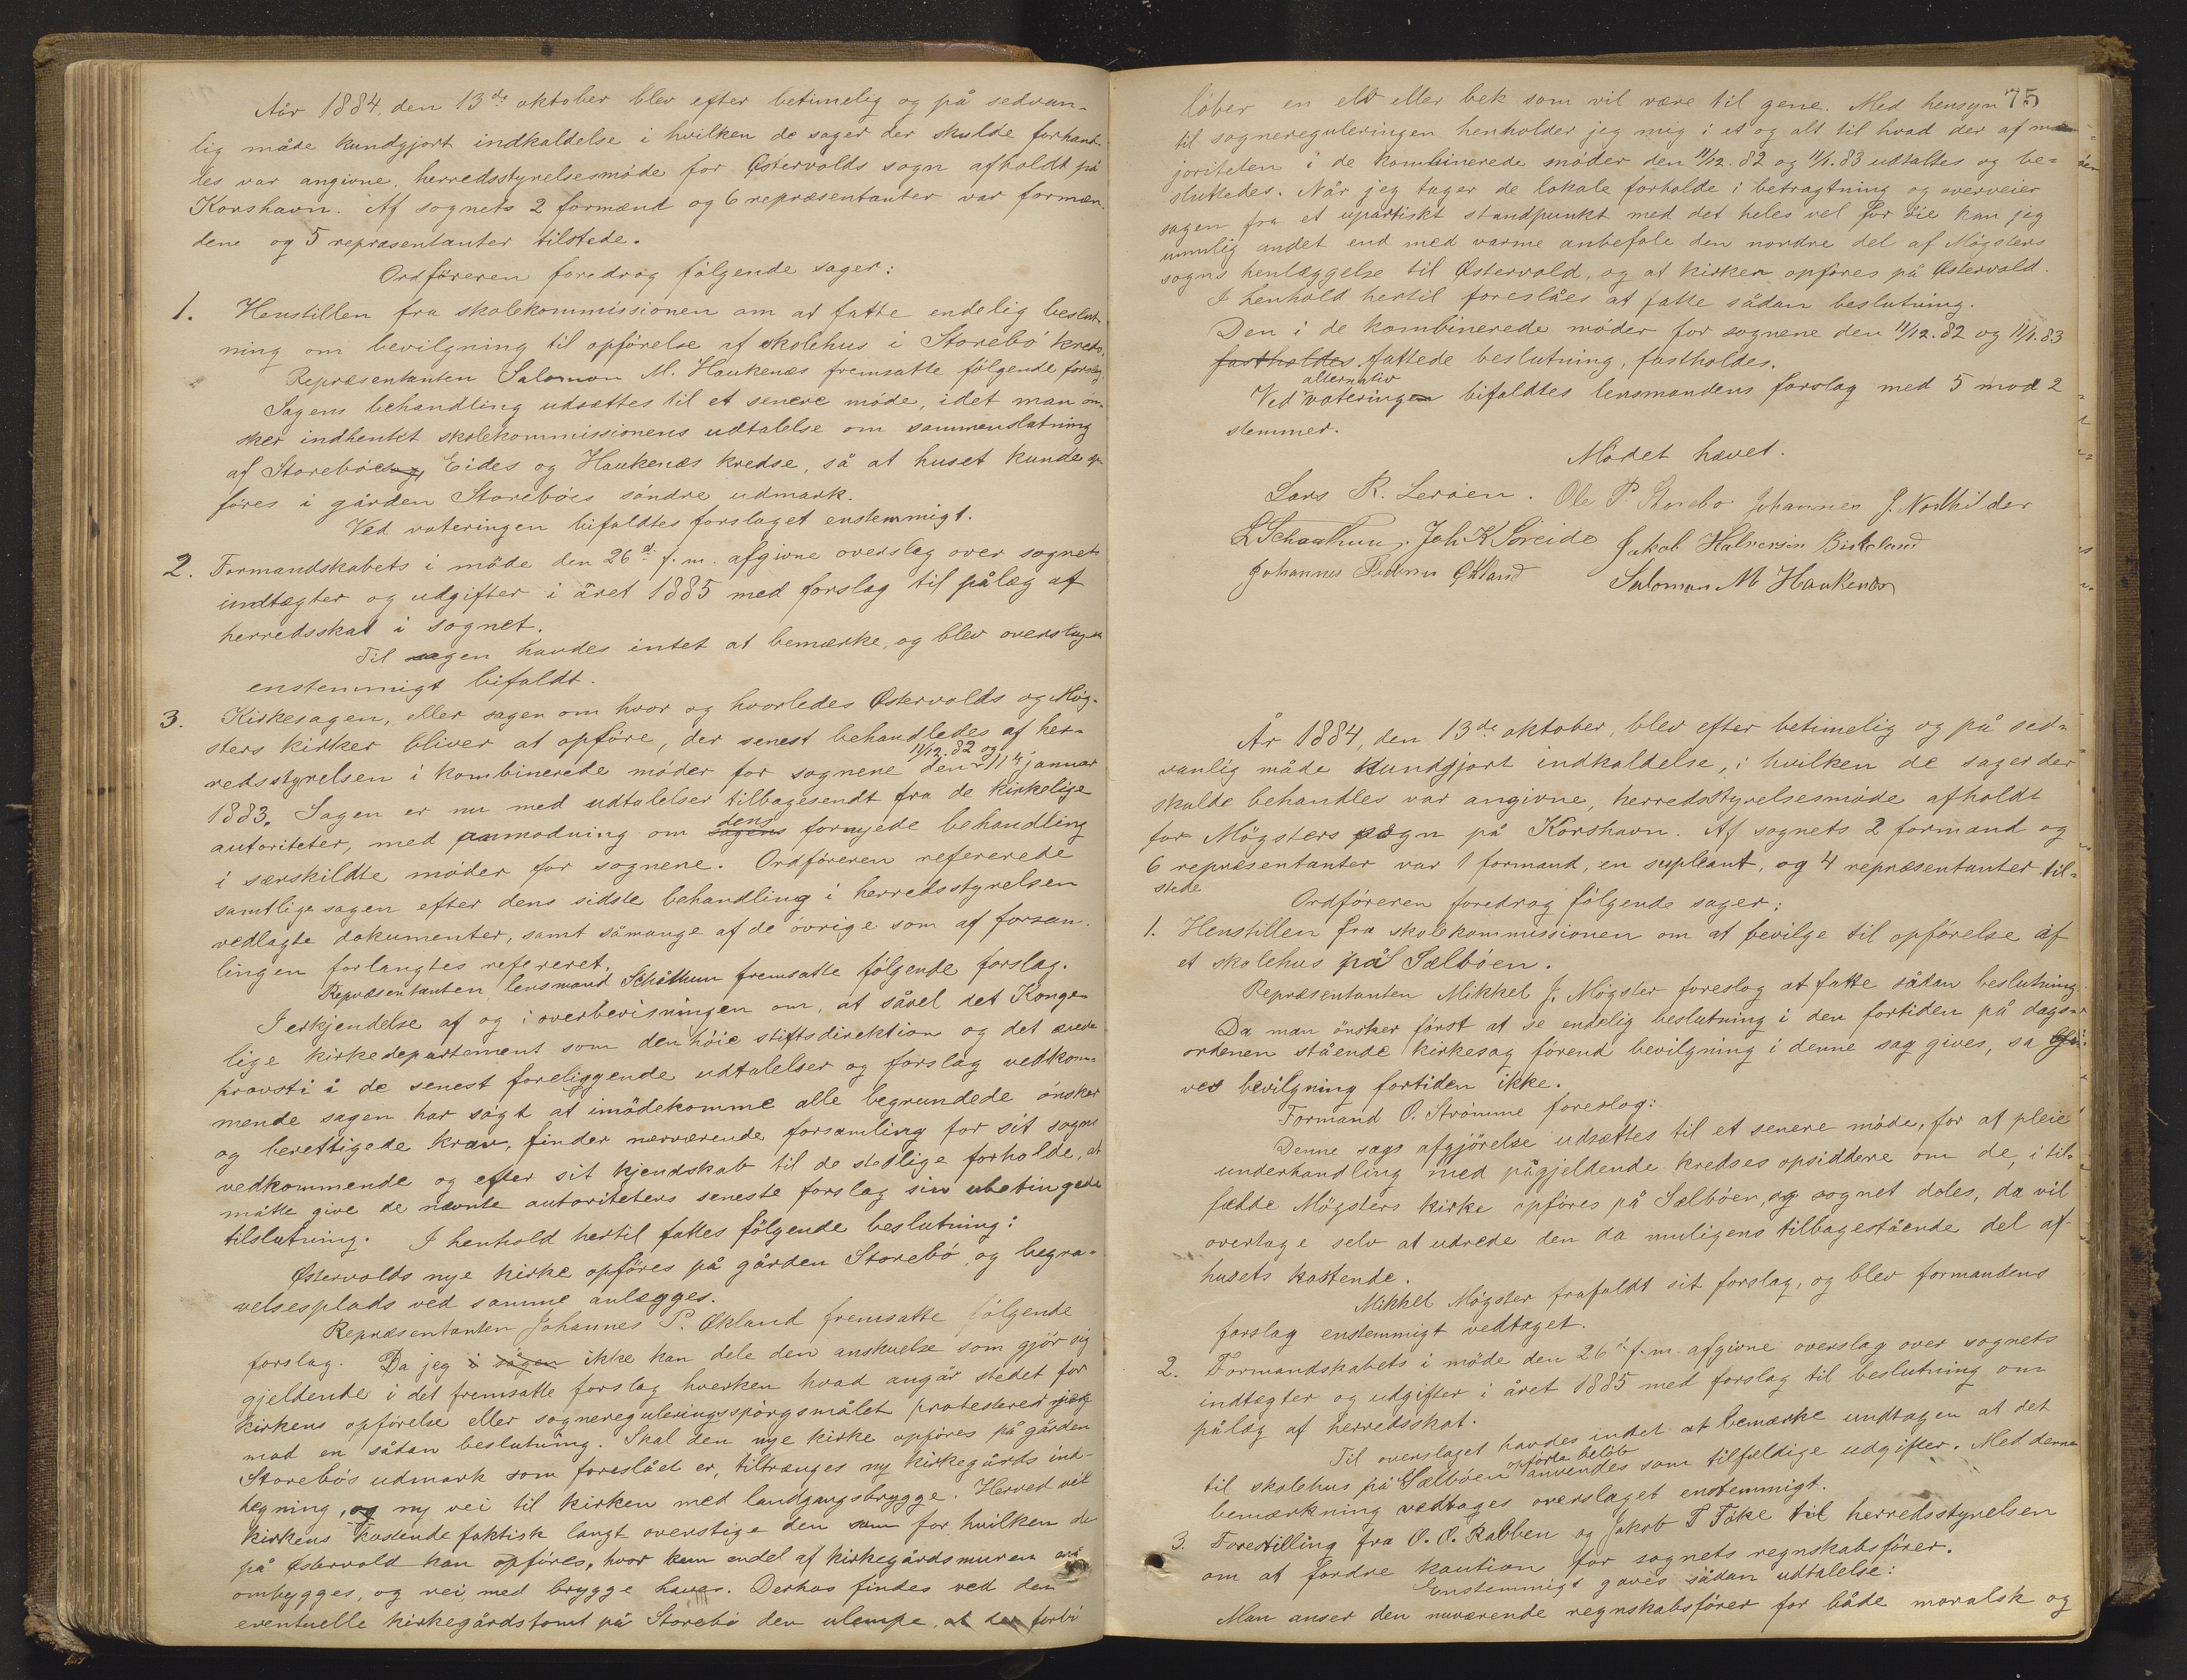 År 1884, den 13de oktober blev efter betimelig og på sedvan-
lig måde kundgjort indkaldelse i hvilken de sager der skulde forhand-
les var angivne, herredsstyrelsesmöde for Østervolds sogn afholdt på
Korshavn. Af sognets 2 formænd og 6 repræsentanter var formæn-
dene og 5 repræsentanter tilstede.
Ordföreren foredrog fölgende sager:
1. Henstillen fra skolekommissionen om at fatte endelig beslut-
ning om bevilgning til opförelse af skolehus i Storebö kreds.
Repræsentanten Salomon M. Haukenæs fremsatte fölgende forslag
Sagens behandling udsættes til et senere möde, idet man ön-
sker indhentet skolekommissionens udtalelse om sammenslutning
af Storeböes og Eides og Haukenæs kredse, så at huset kunde op-
föres i gården Storeböes söndre udmark.
Ved voteringen bifaldtes forslaget enstemmigt.
2. Formandskabets i möde den 26d f. m. afgivne overslag over sognets
indtægter og udgifter i året 1885 med forslag til pålæg af
herredsskat i sognet.
Til sagen havdes intet at bemærke, og blev overslaget
enstemmigt bifaldt.
3. Kirkesagen, eller sagen om hvor og hvorledes Østervolds og Mög-
sters kirker bliver at opföre, der senest behandledes af her-
redsstyrelsen i kombinerede möder for sognene den 11/12. 82 og 11te januar
1883. Sagen er nu med udtalelser tilbagesendt fra de kirkelige
autoriteter, med anmodning om sagens dens fornyede behandling
i særskildte möder for sognene. Ordföreren refererede
samtlige sagen efter dens sidste behandling i herredsstyrelsen
vedlagte dokumenter, samt såmange af de övrige som af forsam-
lingen forlangtes refereret.
Repræsentanten lensmand Schåthun fremsatte fölgende forslag.
I erkjendelse af og i overbevisningen om, at såvel det Konge-
lige kirkedepartement som den höie stiftsdirektion og det ærede
provsti i de senest foreliggende udtalelser og forslag vedkom-
mende sagen har sögt at imödekomme alle begrundede önsker
og berettigede krav, finder nærværende forsamling for sit sogns
vedkommende og efter sit kjendskab til de stedlige forholde, at
måtte give de nævnte autoriteters seneste forslag sin ubetingede
tilslutning. I henhold hertil fattes fölgende beslutning:
Østervolds nye kirke opföres på gården Storebö, og begra-
velsesplads ved samme anlægges.
Repræsentanten Johannes P. Økland fremsatte fölgende
forslag. Da jeg i sagen ikke kan dele den anskuelse som gjör sig
gjeldende i det fremsatte forslag hverken hvad angår stedet for
kirkens opförelse eller sognereguleringsspörgsmålet protesterer jeg
mod en sådan beslutning. Skal den nye kirke opföres på gården
Storebös udmark som foreslået er, tiltrænges ny kirkegårds ind-
hegning, og ny vei til kirken med landgangsbrygge. Herved vil
kirkens kostende faktisk langt overstige den sum for hvilken de
på Østervold kan opföres, hvor kun endel af kirkegårdsmuren må
ombygges, og vei, med brygge haves. Derhos findes ved den
eventuelle kirkegårdstomt på Storebö den ulempe, at der forbi
75
löber en elv eller bek som vil være til gene. Med hensyn
til sognereguleringen henholder jeg mig i et og alt til hvad der af ma-
joriteten i de kombinerede möder den 11/12. 82 og 11/1. 83 udtaltes og be-
sluttedes. Når jeg tager de lokale forholde i betragtning og overveier
sagen fra et upartiskt standpunkt med det heles vel for öie kan jeg
umulig andet end med varme anbefale den nordre del af Mögsters
sogns henlæggelse til Østervold, og at kirken opföres på Østervold.
I henhold hertil foreslåes at fatte sådan beslutning.
Den i de kombinerede möder for sognene den 11/12. 82 og 11/1. 83
fastholdes. fattede beslutning, fastholdes.
Ved alternativ voteringen bifaldtes lensmandens forslag med 5 mod 2
stemmer.
Mödet hævet.
Lars R. Leröen. Ole P. Storebö Johannes J. Nordhilder
L Schaathun. Joh K Söreide Jakob Halversen Birkeland
Johannes Pedersen Økland Salomon M Haukenæs
År 1884, den 13de oktober, blev efter betimelig og på sed-
vanlig måde kundgjort indkaldelse, i hvilken de sager der
skulde behandles var angivne, herredsstyrelsesmöde afholdt
for Mögsters sogn på Korshavn. Af sognets 2 formænd og
6 repræsentanter var 1 formand, en supleant, og 4 repræsentanter til-
stede
Ordföreren foredrog fölgende sager:
1. Henstillen fra skolekommissionen om at bevilge til opförelse af
et skolehus på Sælböen.
Repræsentanten Mikkel J. Mögster foreslog at fatte sådan beslutning.
Da man önsker först at se endelig beslutning i den fortiden på dags-
ordenen stående kirkesag förend bevilgning i denne sag gives, sa gi-
ves bevilgning fortiden ikke.
Formand O. Strömme foreslog:
Denne sags afgjörelse udsættes til et senere möde, for at pleie
underhandling med pågjeldende kredses opsiddere om de, i til-
fælde Mögsters kirke opföres på Sælböen, og sognet deles, da vil
overtage selv at udrede den da muligens tilbagestående del af
husets kostende.
Mikkel Mögster frafaldt sit forslag, og blev formandens
forslag enstemmigt vedtaget.
2. Formandskabets i möde den 26d f. m. afgivne overslag over sognets
indtægter og udgifter i året 1885 med forslag til beslutning om
pålæg af herredsskat.
Til overslaget havdes indet at bemærke undtagen at det
til skolehus på Sælböen opförte belöb anvendes som tilfældige udgifter. Med denne
bemærkning vedtages overslaget enstemmigt.
3. Forestilling fra O. O. Rabben og Jakob T Töke til herredsstyrelsen
om at fordre kaution for sognets regnskabsförer.
Enstemmigt gaves sådan udtalelse:
Man anser den nuværende regnskabsförer for både moralsk og